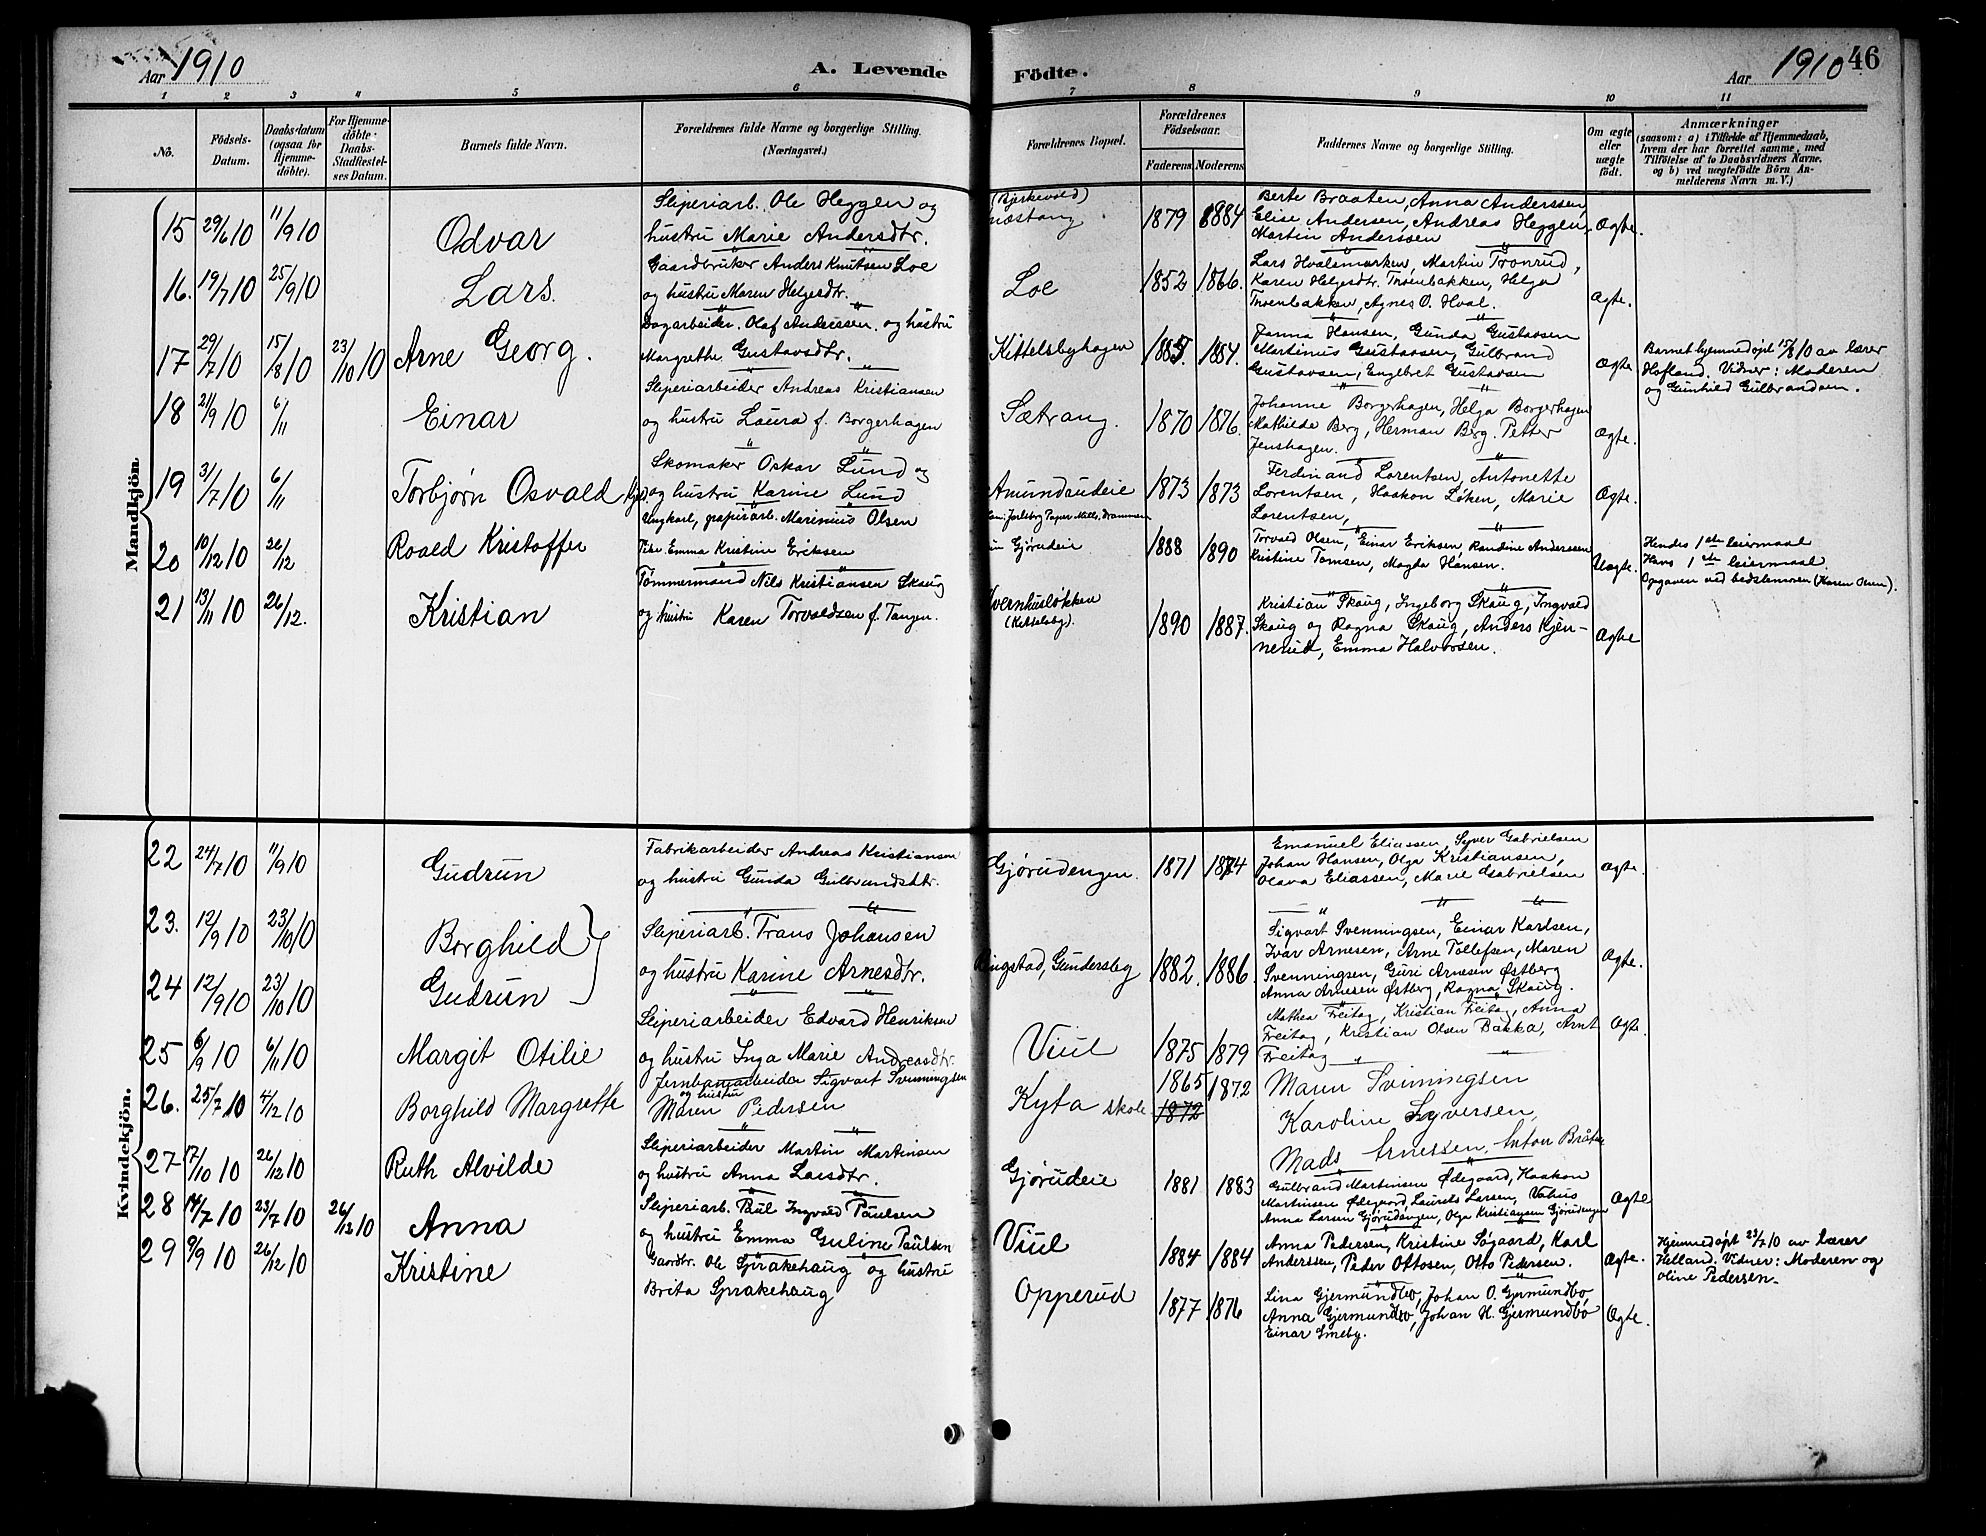 Aar 1910
A. Levende
Födte.
Aar 1910
46
1 2 3 4 5 6 7 8 9 10 11
No.
Födsels-
Datum.
Daabsdatum
(ogsaa for
Hjemme-
døbte).
For Hjemme-
døbte
Daabs-
Stadfæstel-
ses Datum.
Barnets fulde Navn.
Forældrenes fulde Navne og borgerlige Stilling.
(Næringsvei.)
Forældrenes Bopæl.
Forældrenes
Födselsaar.
Faderens. Moderens.
Faddernes Navne og borgerlige Stilling.
Om ægte
eller
uægte
födt.
Anmærkninger
(saasom: a) i Tilfælde af Hjemmedaab,
hvem der har forrettet samme, med
Tilföielse af to Daabsvidners Navne.
og b) ved uægtefödte Börn An-
melderens Navn m. V.)
Mandkjön.
15 29/6 10 11/9 10
Odvar
Sliperiarb. Ole Heggen og
hustru Marie Andersdtr.
(Bjerkevold)
1879 1884
Berte Braaten, Anna Anderssen,
Elise Andersen, Andreas Heggen,
Martin Anderssen
Ægte.
16. 19/7 10 25/9 10
Lars.
Gaardbruker Anders Knutsen Loe
og hustru Maren Helgesdtr.
Loe
1852 1866.
Lars Hvalsmarken, Martin Tronrud,
Karen Helgesdtr. Troenbakken, Helga
Troenbakken, Agnes O. Hval.
Ægte.
17 29/7 10 15/8 10 23/10 10
Arne Georg.
Dagarbeider. Olaf Anderssen. og hustru
Margrethe Gustavsdtr.
Kittelsbyhagen
1885 1884.
Janna Hansen, Gunda Gustavsen
Martinius Gustavsen, Gulbrand
Gustavsen, Engebret Gustavsen
Ægte
Barnet hjemmedøpt 15/8 10 av lærer
Hofland. Vidner: Moderen
og Gunhild Gulbrandsen.
18 21/9 10 6/11
Einar
Sliperiarbeider Andreas Kristiansen
og hustru Laura f. Borgerhagen
Sætrang.
1870 1876.
Johanne Borgerhagen, Helga Borgerhagen
Mathilde Berg, Herman Berg. Petter
Jenshagen.
Ægte.
19 3/7 10 6/11
Torbjørn Osvald
Skomaker Oskar Lund og
og hustru Karine Lund
Amundsudeie
1873 1873
Ferdinand Lorentsen, Antonette
Lorentsen, Haakon Løken, Marie
Lorentsen,
Ægte.
20 10/12 10 26/12
Roald Kristoffer
Ungkarl, papirarb. Marinius Olsen
Pike Emma Kristine Eriksen
Gjørudeie
1888 1890
Torvald Olsen, Einar Eriksen, Randine Anderssen
Kristine Tomsen, Magda Hansen.
Uægte.
Hendes 1ste leiermaal
Hans 1ste leiermaal
Opgaven ved bedstemoren (Karen Olsen).
21 13/11 10 26/12.
Kristian
Tømmermand Nils Kristiansen Skaug
og hustru Karen Torvaldsen f. Tangen.
Kvernhusløkken
(Kittelsby).
1890 1887.
Kristian Skaug, Ingeborg Skaug, Ingvald
Skaug og Ragna Skaug, Anders Kjen-
nerud, Emma Halvorsen.
Ægte
Kvindekjön.
22 24/7 10 11/9 10
Gudrun
Fabrikarbeider Andreas Kristiansen
og hustru Gunda Gulbrandsdtr.
Gjørudengen.
1871 1874
Emanuel Eliassen, Syver Gabrielsen
Johan Hansen, Olga Kristiansen,
Olava Eliassen, Marie Gabrielsen
Ægte.
23. 12/9 10 23/10 10
Borghild
24 12/9 10 23/10 10
Gudrun
Sliperiarb. Frans Johansen
og hustru Karine Arnesdtr.
Ringstad, Gundersby
1882. 1886
Sigvart Svenningsen, Einar Karlsen,
Ivar Arnesen, Arne Tollefsen, Maren
Svenningsen, Guri Arnesen Østberg
Anna Arnesen Østberg, Ragna Skaug.
Ægte.
25 6/9 10 6/11 10
Margit Otilie
Sliperiarbeider Edvard Henriksen
og hustru Inga Marie Andreasdtr.
Viul
1875 1879
Mathea Freitag, Kristian Freitag, Anna
Freitag, Kristian Olsen Bakka, Arnt
Freitag
Ægte.
26. 25/7 10 4/12 10
Borghild Margrethe
Jernbanarbeider Sigvart Svenningsen
og hustru
Maren Pedersen
Kyta skole
1865 1872
1872
Maren Svenningsen
Karoline Syversen,
Mads Arnessen, Anton Bråten
27 17/10 10 26/12 10
Ruth Alvilde
Sliperiarbeider Martin Martinsen
og hustru Anna Larsdtr.
Gjørudeie
1881 1883
Gulbrand Martinsen Ødegaard, Haakon
Martinsen Ødegaard, Laurits Larsen,
Anna Larsen Gjørudengen, Olga Kristiansen Gjørudengen
Ægte
28 14/7 10 23/7 10 26/12 10
Anna
Sliperiarb. Paul Ingvald Paulsen
og hustru Emma Guline Paulsen
Viul
1884 1884
Anna Pedersen, Kristine Søgaard, Karl
Anderssen, Peder Ottosen, Otto Pedersen.
Ægte.
Hjemmedøpt 23/7 10 av lærer
Helland. Vidner: Moderen og
Oline Pedersen.
29 9/9 10 26/12 10
Kristine
Gaardbr. Ole Sprakehaug og hustru
Brita Sprakehaug
Opperud
1877 1876
Lina Gjermundbo, Johan O. Gjermundbo
Anna Gjermundbo, Johan H. Gjermundbo
Einar Smeby.
Ægte.